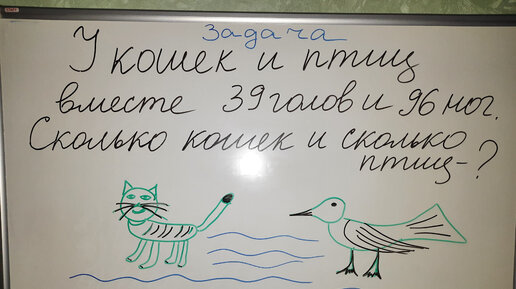 Задача
У кошек и птиц
вместе 39 голов и 96 ног.
Сколько кошек и сколько
птиц-?